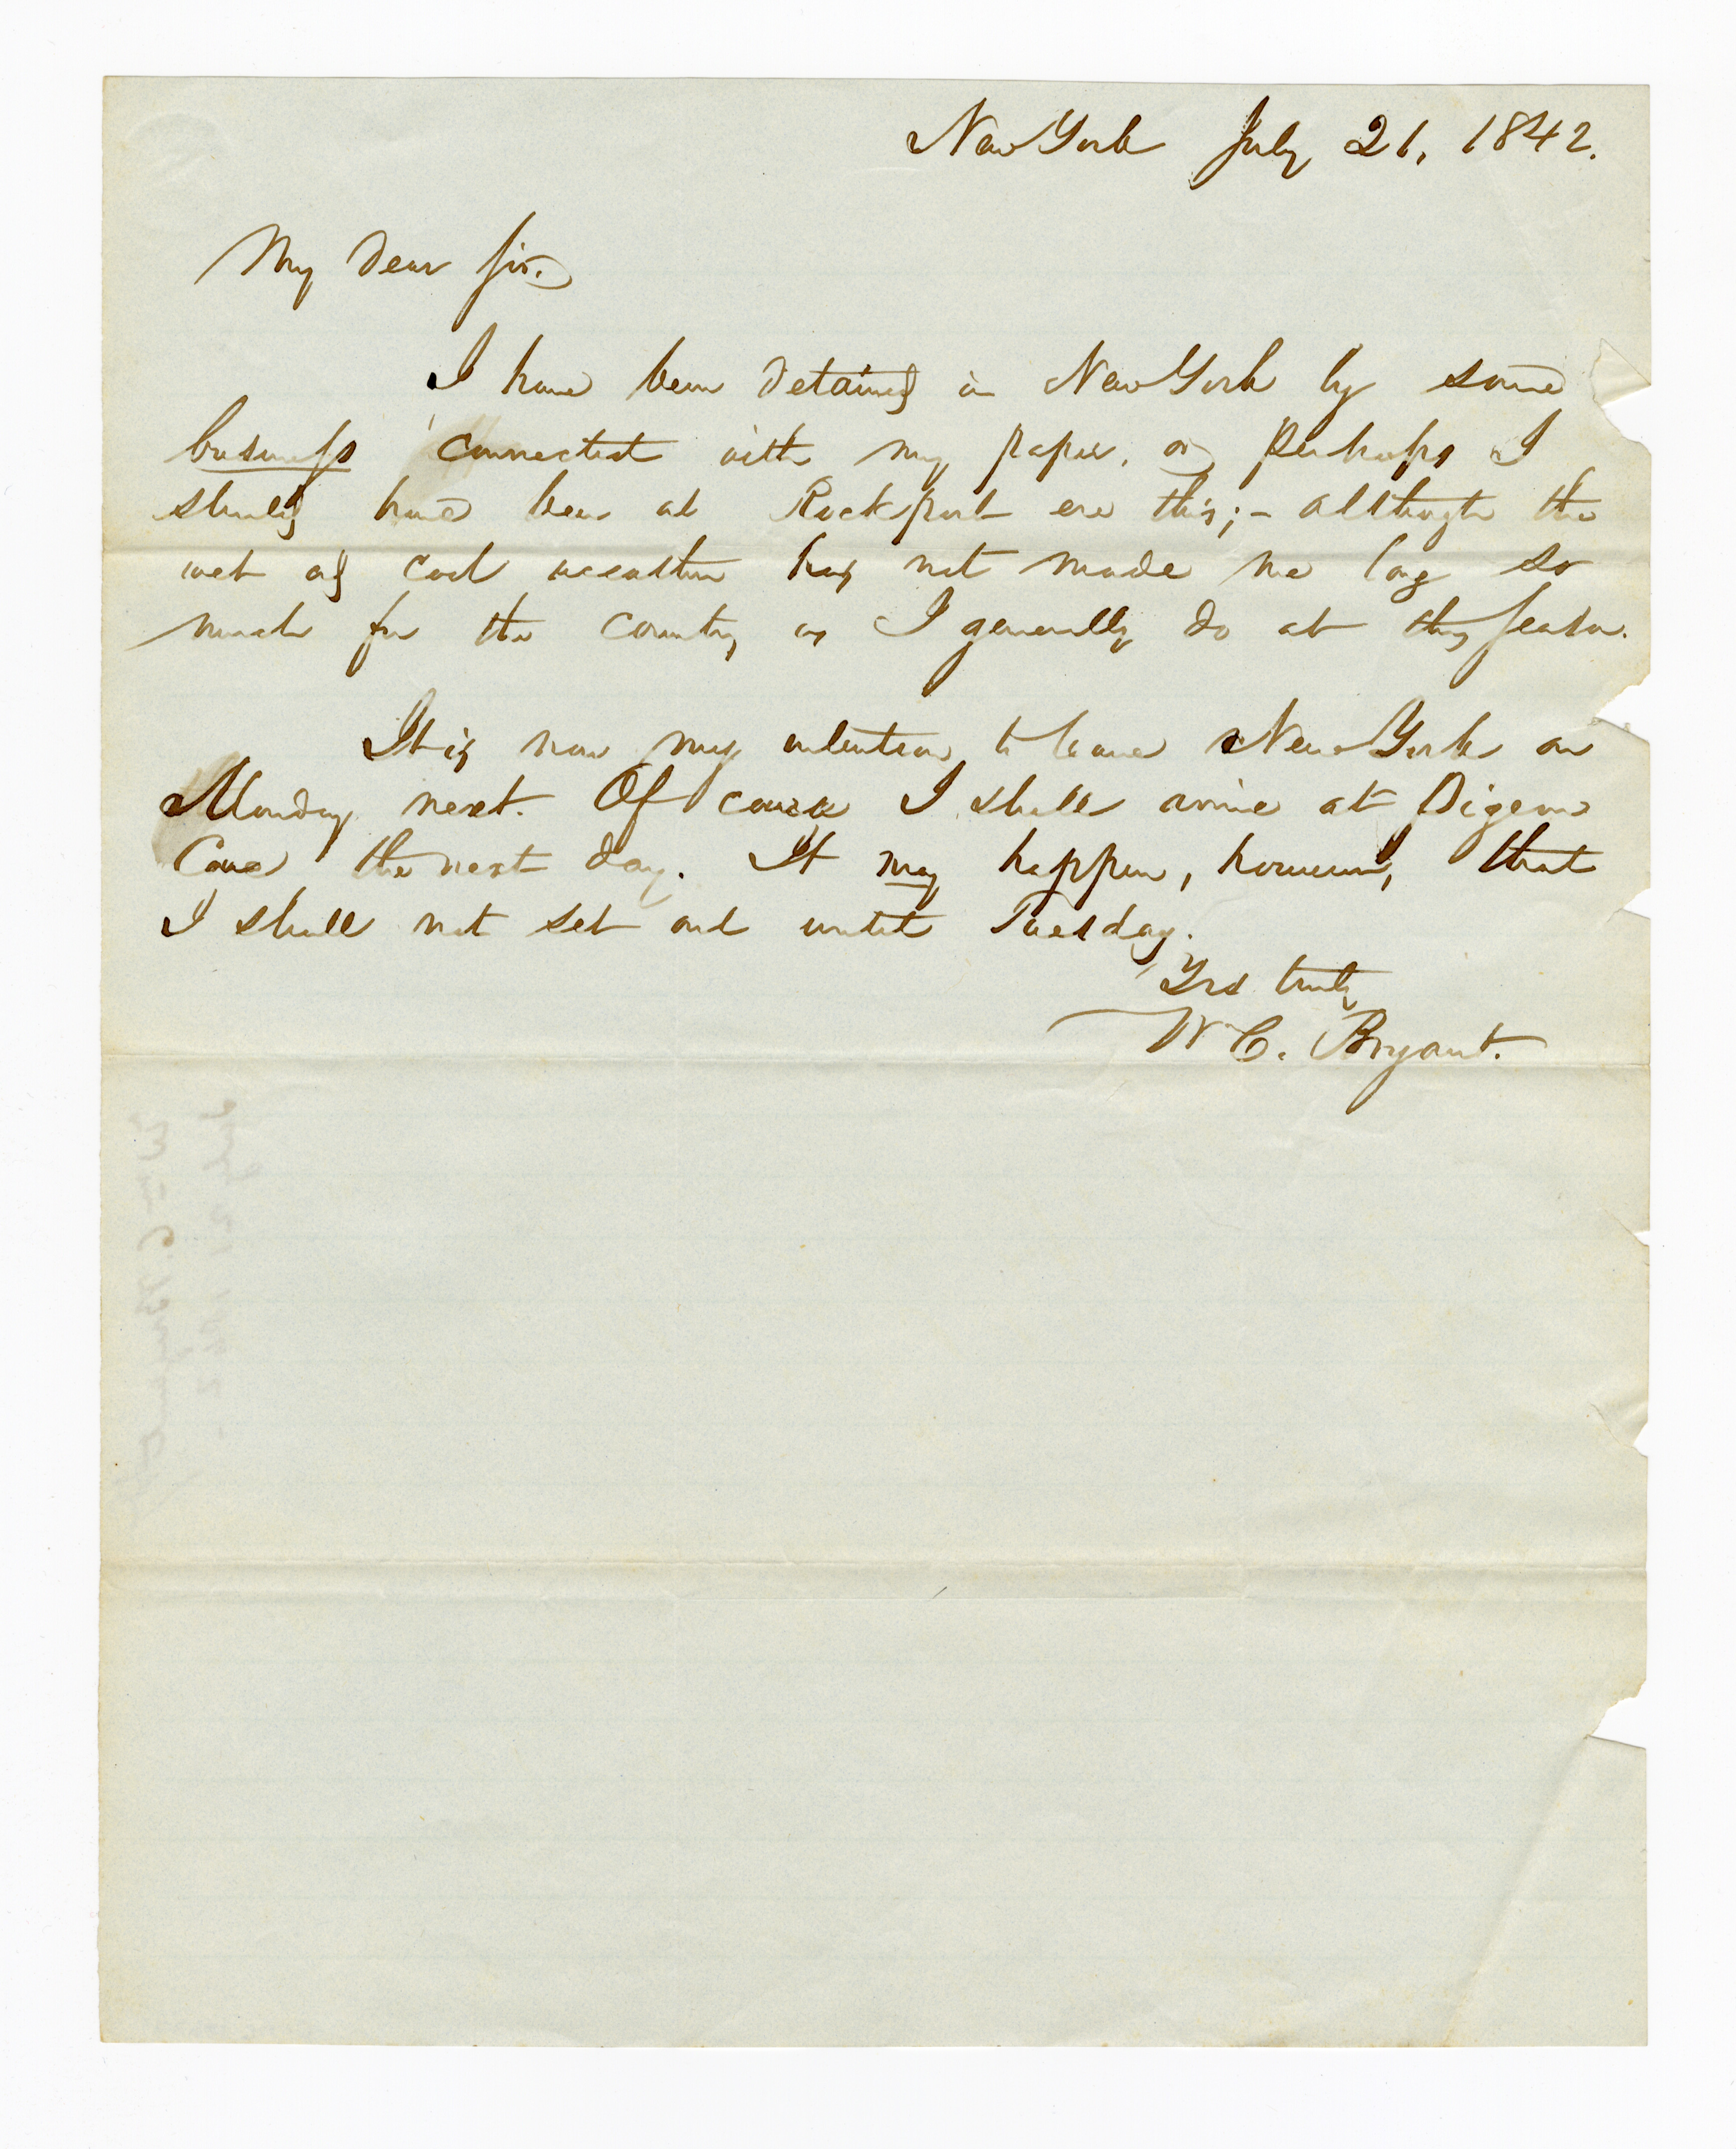 New York July 21, 1842.
My dear Sir.
I have been detained in New York by some
business connected with my paper, or perhaps I
should have been at Rockport ere this; - although the
wet and cool weather has not made me long so
much for the country as I generally do at this season.
It is now my intention to leave New York on
Monday next. Of course I shall arrive at Pigeon
Cove the next day. It may happen, however, that
I shall not set out until Tuesday.
Yrs truly
W C. Bryant.
Wm C. Bryant
July 21 1842 -